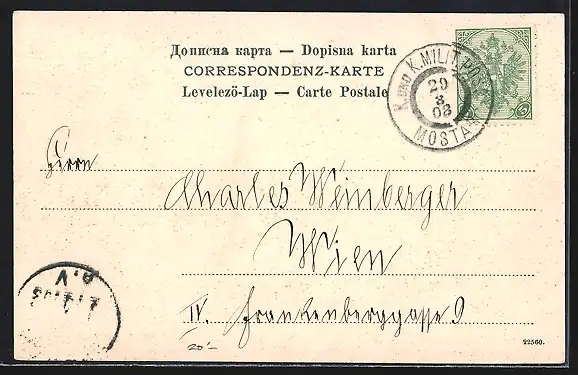 Дописна карта — Dopisna karta
CORRESPONDENZ-KARTE
Levelező-Lap — Carte Postale
K. UND K. MILIT. POST
29
3
03
MOSTAR
Herrn
Charles Weinberger
Wien
IV. Frankenberggasse 9
20.–
22560.